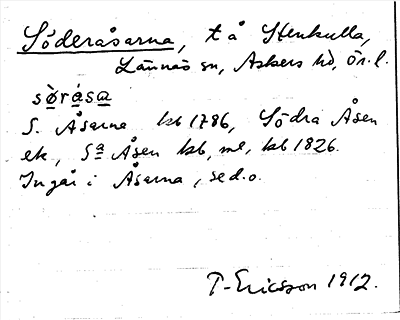 Söderåsarna, t å Stenkulla,
Lännäs sn, Askers hd, Ör. l.
sø̀rása
S. Åsarna hb 1786, Södra Åsen
ek, Sª Åsen kb, ml, hb 1826.
Ingår i Åsarna, se d.o.
T-Ericsson 1912.